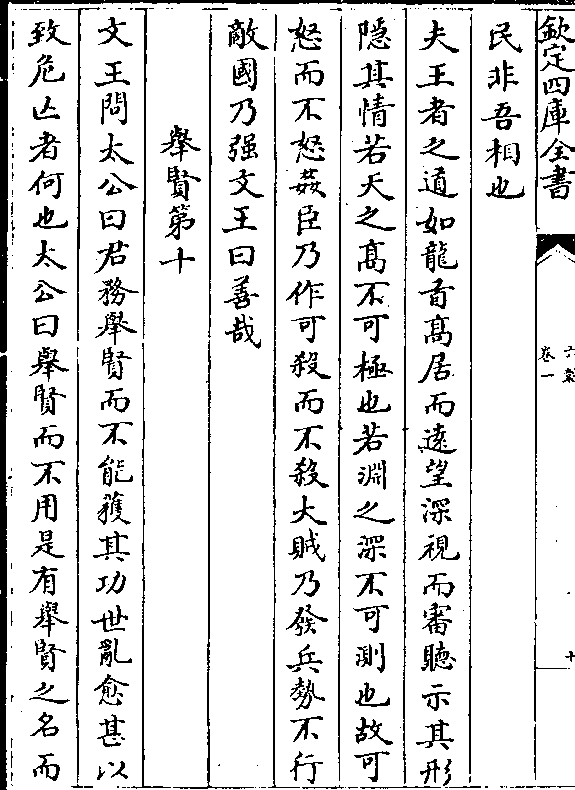 欽定四庫全書
六韜
卷一
十
民非吾相也
夫王者之道如龍首髙居而逺望深視而審聽示其形
隱其情若天之髙不可極也若淵之深不可測也故可
怒而不怒姦臣乃作可殺而不殺大賊乃發兵勢不行
敵國乃强文王曰善哉
舉賢第十
文王問太公曰君務舉賢而不能獲其功世亂愈甚以
致危亡者何也太公曰舉賢而不用是有舉賢之名而